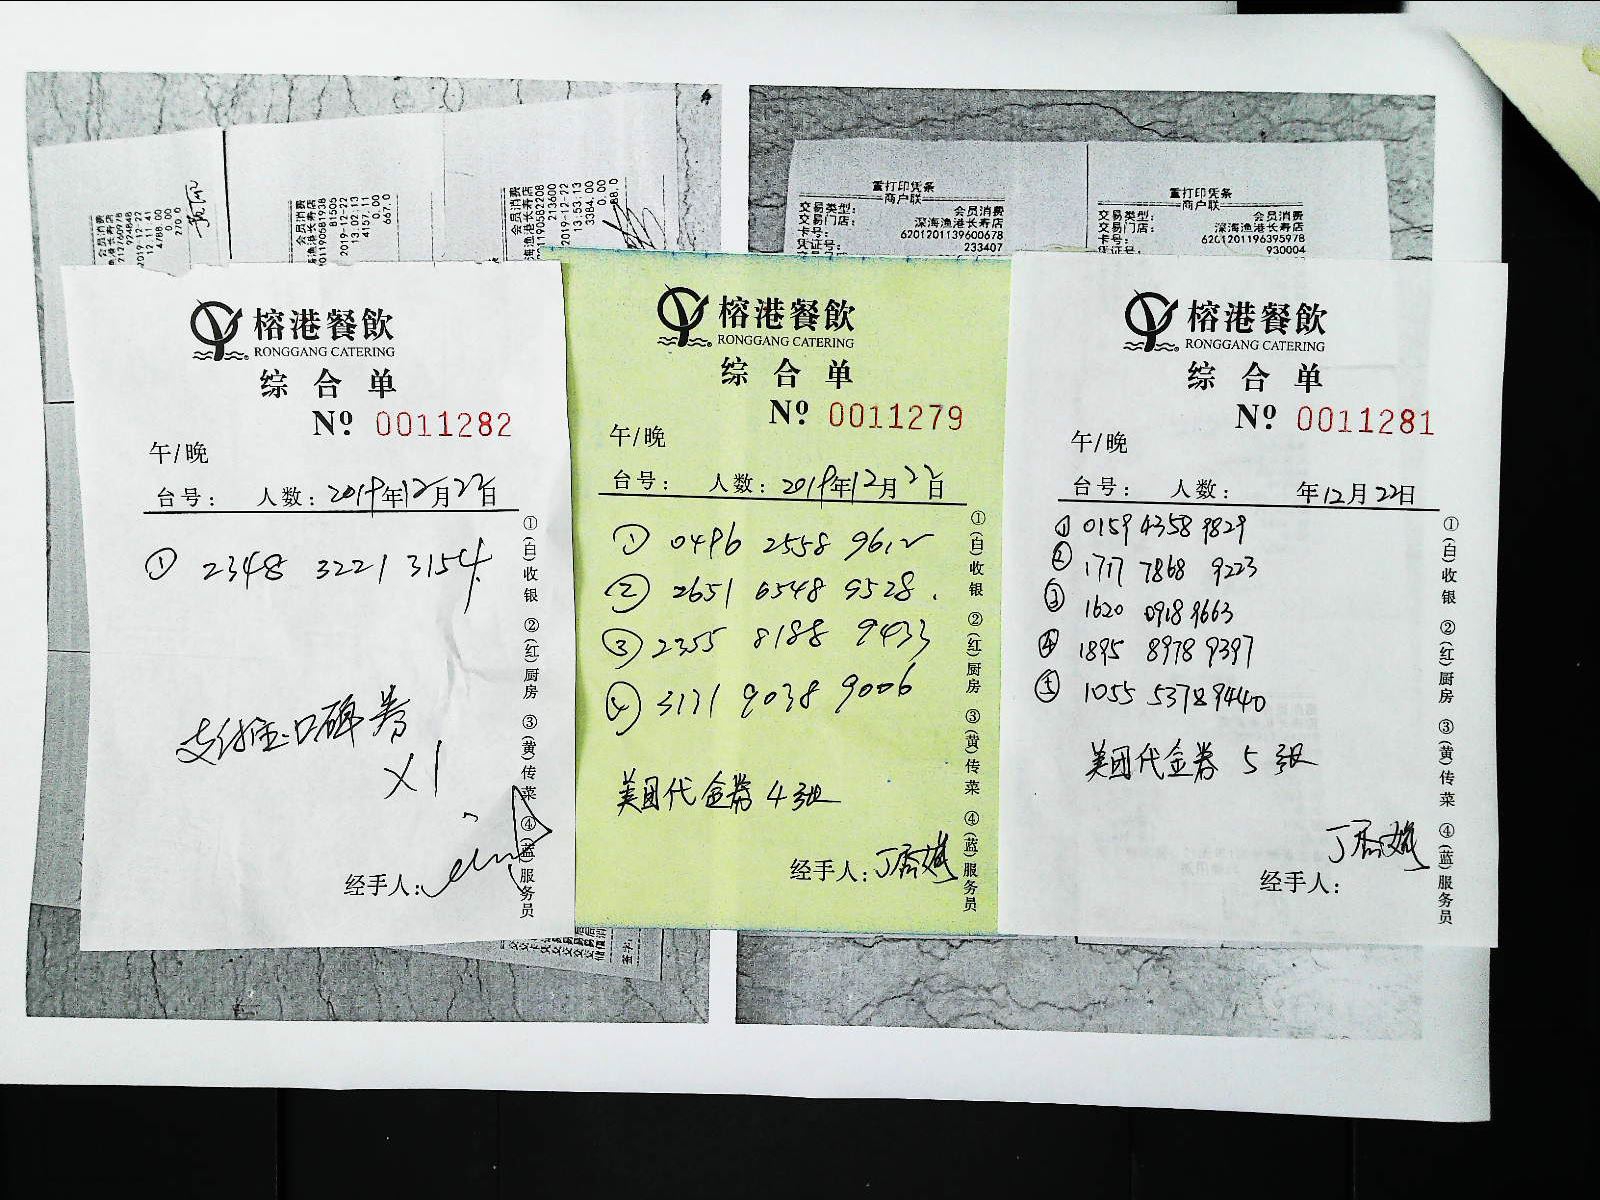 会员消费
深海渔港长寿店
2019-12-22
12:11:41
4788.00
0.00
270.0
会员消费
深海渔港长寿店
81505
2019-12-22
13:02:13
4157.11
0.00
667.0
会员消费
深海渔港长寿店
213600
2019-12-22
13:53:13
3384.00
0.00
重打印凭条
商户联
交易类型: 会员消费
交易门店: 深海渔港长寿店
卡号: 6201201139600678
凭证号: 233407
重打印凭条
商户联
交易类型: 会员消费
交易门店: 深海渔港长寿店
卡号: 6201201196395978
凭证号: 930004
榕港餐飲
RONGGANG CATERING
综合单
Nº 0011282
午/晚
台号: 人数: 2019年12月22日
① 2348 3221 3154
支付宝口碑券
X1
经手人:
①(白)收银 ②(红)厨房 ③(黄)传菜 ④(蓝)服务员
榕港餐飲
RONGGANG CATERING
综合单
Nº 0011279
午/晚
台号: 人数: 2019年12月22日
① 0496 2558 9612
② 2651 6548 9528.
③ 2355 8188 9433
④ 3171 9038 9006
美团代金券4张
经手人:
①(白)收银 ②(红)厨房 ③(黄)传菜 ④(蓝)服务员
榕港餐飲
RONGGANG CATERING
综合单
Nº 0011281
午/晚
台号: 人数: 年12月22日
① 0159 4358 9829
② 1717 7868 9223
③ 1620 0918 9663
④ 1895 8978 9397
⑤ 1055 5378 9440
美团代金券 5张
经手人:
①(白)收银 ②(红)厨房 ③(黄)传菜 ④(蓝)服务员